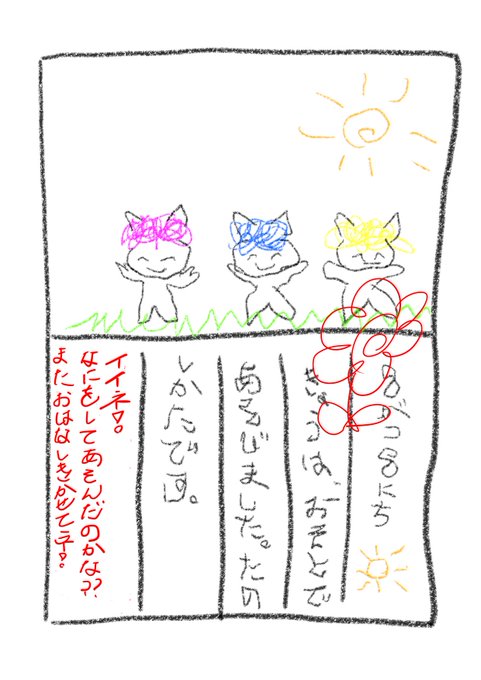 8がつ8にち
きょうは、おそとで
あそびました。たの
しかたです。
イイネ!。
なにをしてあそんだのかな??
またおはなしきかせてネ!。